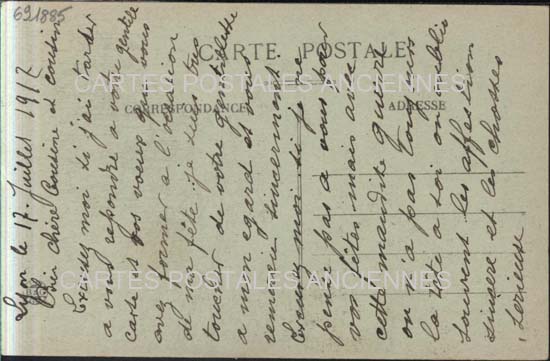 691885
CARTE POSTALE
CARTES POSTALES ANCIENNES
CORRESPONDANCE
ADRESSE
CARTES POSTALES ANCIENNES
CARTES POSTALES ANCIENNES
Lyon le 17 Juillet 1917
chère Cousine et cousin
Excusez moi si j'ai tarder
a vous repondre a votre gentille
carte et vos vœux que vous
avez former a l'occasion
de ma fête je suis très
toucher de votre gentillesse
a mon egard et vous
remercie sincerement
Excusez moi si je ne
pense pas a vous pour
vos fêtes mais avec
cette maudite guerre
on n'a pas toujours
la tête a soi on oublie
souvent les affection
sincere et les choses
serieuse